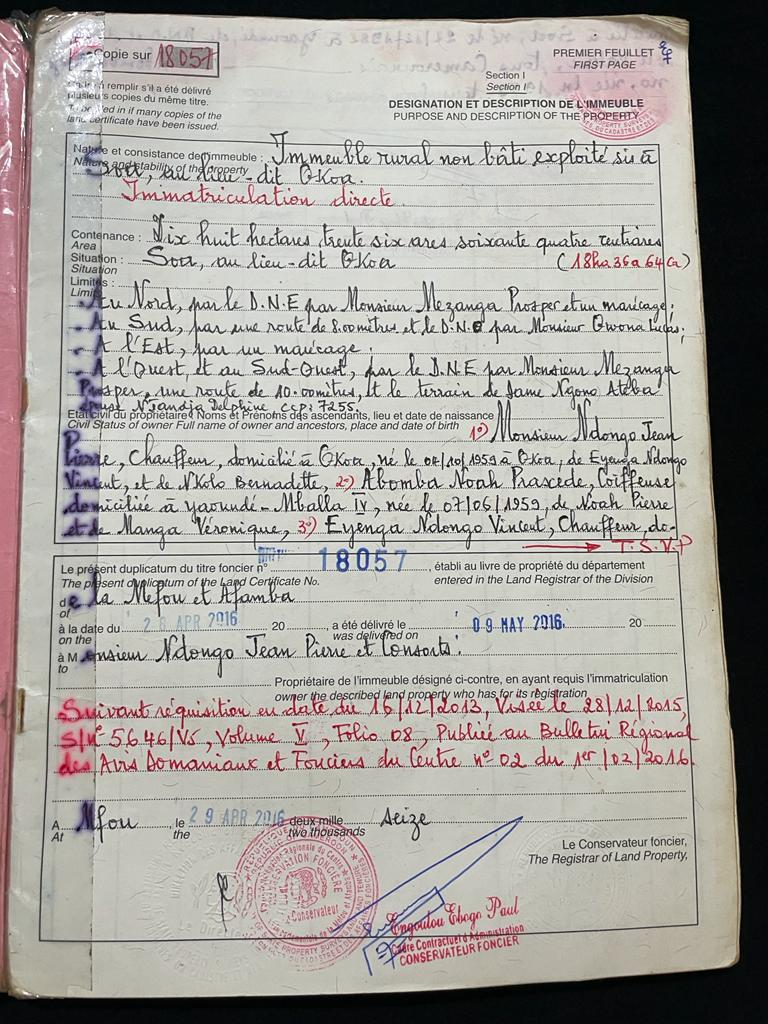 Copie sur 18057
PREMIER FEUILLET
FIRST PAGE
remplir s'il a été délivré
plusieurs copies du même titre.
To be filled in if many copies of the
land certificate have been issued.
Section I
Section I
DESIGNATION ET DESCRIPTION DE L'IMMEUBLE
PURPOSE AND DESCRIPTION OF THE PROPERTY
Nature et consistance de immeuble : Immeuble rural non bâti exploité sis à
Nature and stability of the property
Soa, au lieu-dit OKoa.
Immatriculation directe
Contenance : Dix huit hectares trente six ares soixante quatre centiares
Area
Situation : Soa, au lieu-dit OKoa (18ha 36a 64ca)
Situation
Limites :
Limit
- Au Nord, par le D.N.E par Monsieur Mezanga Prosper et un marécage;
- Au Sud, par une route de 8.00mètres, et le D.N.E par Monsieur Owona Lucas;
- A l'Est, par un marécage;
- A l'Ouest, et au Sud-Ouest, par le D.N.E par Monsieur Mezanga
Prosper, une route de 10.00mètres, et le terrain de Dame Ngono Ateba
épouse Njandja Delphine CCP: 7255.
Etat civil du propriétaire Noms et Prénoms des ascendants, lieu et date de naissance
Civil Status of owner Full name of owner and ancestors, place and date of birth
1°) Monsieur Ndongo Jean
Pierre, Chauffeur, domicilié à OKoa, né le 04/10/1959 à OKoa, de Eyenga Ndongo
Vincent, et de NKolo Bernadette, 2°) Abomba Noah Prascède, Coiffeuse
domiciliée à yaoundé-Mballa IV, née le 07/06/1959, de Noah Pierre
et de Manga Véronique, 3°) Eyenga Ndongo Vincent, Chauffeur, do-
T.S.V.P
Le présent duplicatum du titre foncier n° 18057, établi au livre de propriété du département
The present duplicatum of the Land Certificate No. entered in the Land Registrar of the Division
de la Mefou et Afamba
of
à la date du 28 APR 2016 20 , a été délivré le 09 MAY 2016. 20
on the was delivered on
à Monsieur Ndongo Jean Pierre et Consorts.
to
Propriétaire de l'immeuble désigné ci-contre, en ayant requis l'immatriculation
owner the described land property who has for its registration
Suivant réquisition en date du 16/12/2013, Visée le 28/12/2015,
S/N° 5646/V5, Volume V, Folio 08, Publiée au Bulletin Régional
des Avis Domaniaux et Fonciers du Centre n° 02 du 1er/02/2016
A Mfou, le 29 APR 2016 deux mille seize
At the two thousands
Le Conservateur foncier,
The Registrar of Land Property,
Conservateur
Engoulou Ebogo Paul
Cadre Contractuel d'Administration
CONSERVATEUR FONCIER